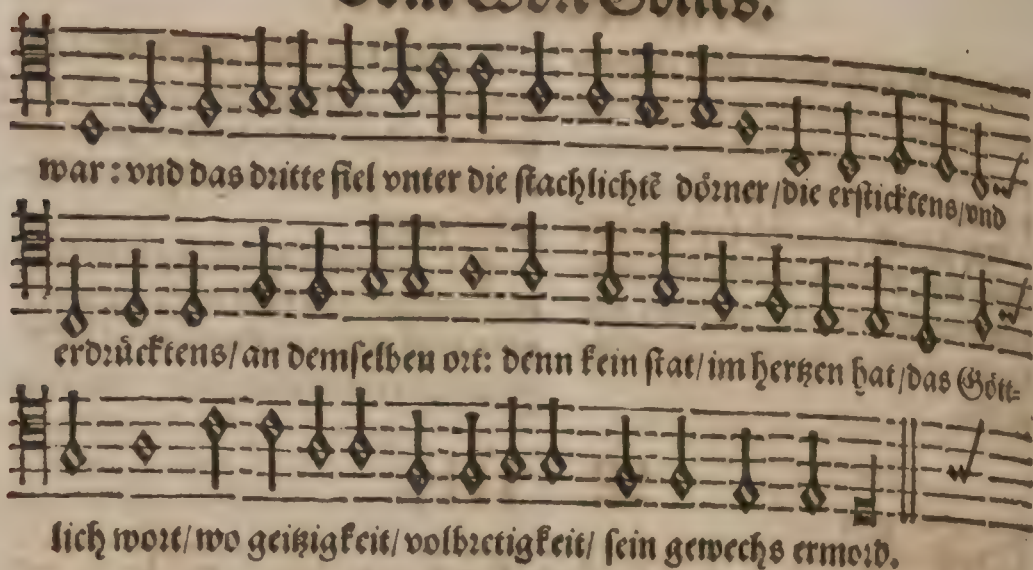 Vom Wort Gottes.
war: vnd das dritte fiel vnter die stachlichtẽ dörner/die ersticktens/vnd
erdrücktens/an demselben ort: denn kein stat/im hertzen hat/das Gött=
lich wort/wo geitzigkeit/volbretigkeit/ sein gewechs ermord.